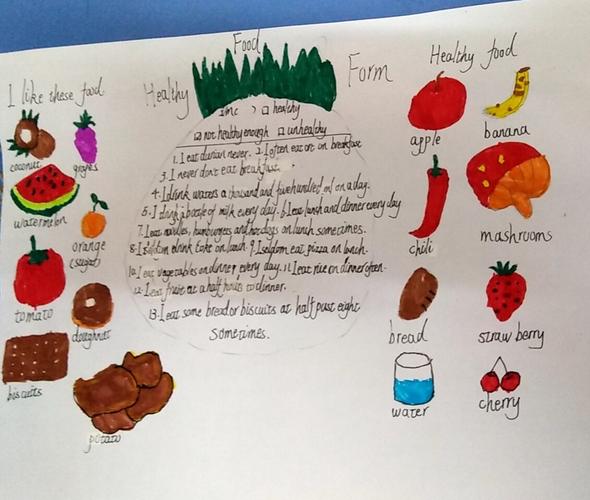 Food
Healthy
Form
I like these food
Healthy food
coconut
grapes
watermelon
orange
tomato
doughnut
biscuits
potato
□ healthy
not healthy enough □ unhealthy
1. I eat durian never. 2. I often eat on breakfast
3. I never don't eat breakfast.
4. I drink waters a thousand and five hundred ml on a day.
5. I drink a bottle of milk every day. 6. I eat lunch and dinner every day
7. I eat noodles, hamburgers and hot dogs on lunch sometimes.
8. I seldom drink coke on lunch. 9. I seldom eat pizza on lunch.
10. I eat vegetables on dinner every day. 11. I eat rice on dinner often.
12. I eat fruit at a half hours to dinner.
13. I eat some bread or biscuits at half past eight
sometimes.
apple
banana
chili
mashrooms
bread
straw berry
water
cherry